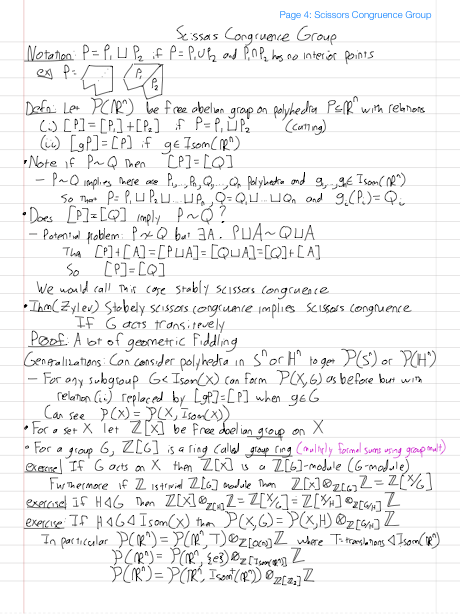 Page 4: Scissors Congruence Group
Scissors Congruence Group
Notation: P = P₁ ⊔ P₂ if P = P₁ ∪ P₂ and P₁ ∩ P₂ has no interior points
ex) P = P₁ P₂
Defn: Let 𝒫(ℝⁿ) be free abelian group on polyhedra P ⊆ ℝⁿ with relations
(i) [P] = [P₁] + [P₂] if P = P₁ ⊔ P₂ (cutting)
(ii) [gP] = [P] if g ∈ Isom(ℝⁿ)
• Note if P ~ Q then [P] = [Q]
– P ~ Q implies there are P₁,…,Pₙ, Q₁,…,Qₙ polyhedra and g₁,…,gₙ ∈ Isom(ℝⁿ)
So that P = P₁ ⊔ P₂ ⊔ … ⊔ Pₙ, Q = Q₁ ⊔ … ⊔ Qₙ and gᵢ(Pᵢ) = Qᵢ
• Does [P] = [Q] imply P ~ Q?
– Potential problem: P ≁ Q but ∃A. P ⊔ A ~ Q ⊔ A
Then [P] + [A] = [P ⊔ A] = [Q ⊔ A] = [Q] + [A]
So [P] = [Q]
We would call this case stably scissors congruence
• Thm (Zylev) Stabely scissors congruence implies scissors congruence
If G acts transitively
Proof: A lot of geometric fiddling
Generalizations: Can consider polyhedra in Sⁿ or Hⁿ to get 𝒫(Sⁿ) or 𝒫(Hⁿ)
– For any subgroup G < Isom(X) can form 𝒫(X,G) as before but with
relation (ii) replaced by [gP] = [P] when g ∈ G
Can see 𝒫(X) = 𝒫(X, Isom(X))
• For a set X let ℤ[X] be free abelian group on X
• For a group G, ℤ[G] is a ring called group ring (multiply formal sums using group mult)
exercise) If G acts on X then ℤ[X] is a ℤ[G]-module (G-module)
Furthermore if ℤ is trivial ℤ[G] module then ℤ[X] ⊗_ℤ[G] ℤ = ℤ[X/G]
exercise) If H ◁ G then ℤ[X] ⊗_ℤ[G] ℤ = ℤ[X/G] = ℤ[X/H] ⊗_ℤ[G/H] ℤ
exercise: If H ◁ G ◁ Isom(X) then 𝒫(X,G) = 𝒫(X,H) ⊗_ℤ[G/H] ℤ
In particular 𝒫(ℝⁿ) = 𝒫(ℝⁿ, T) ⊗_ℤ[O(n)] ℤ where T = translations ◁ Isom(ℝⁿ)
𝒫(ℝⁿ) = 𝒫(ℝⁿ, {e}) ⊗_ℤ[Isom(ℝⁿ)] ℤ
𝒫(ℝⁿ) = 𝒫(ℝⁿ, Isom⁺(ℝⁿ)) ⊗_ℤ[ℤ₂] ℤ